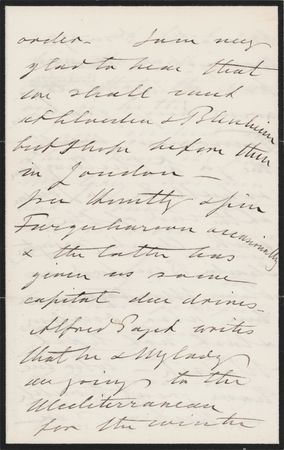 order – I am very
glad to hear that
we shall meet
at Elveden & Blenheim
but I hope before then
in London –
see Huntly & Jim
Farquharson occasionally
& the latter has
given us some
capital deer drives –
Alfred Paget writes
that he & My lady
are going to the
Mediterranean
for the winter